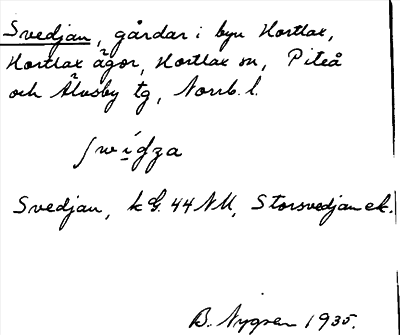 Svedjan, gårdar i byn Hortlax,
Hortlax ägor, Hortlax sn, Piteå
och Älvsby tg, Norrb. l.
Svedjan, k G. 44 NU, Storsvedjan ek.
B. Nygren 1935.